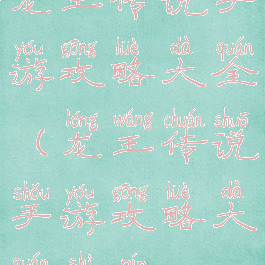 龙王传说手
yóu gōng lüè dà quán
游攻略大全
lóng wáng chuán shuō
（龙王传说
shǒu yóu gōng lüè dà
手游攻略大
quán shì pín